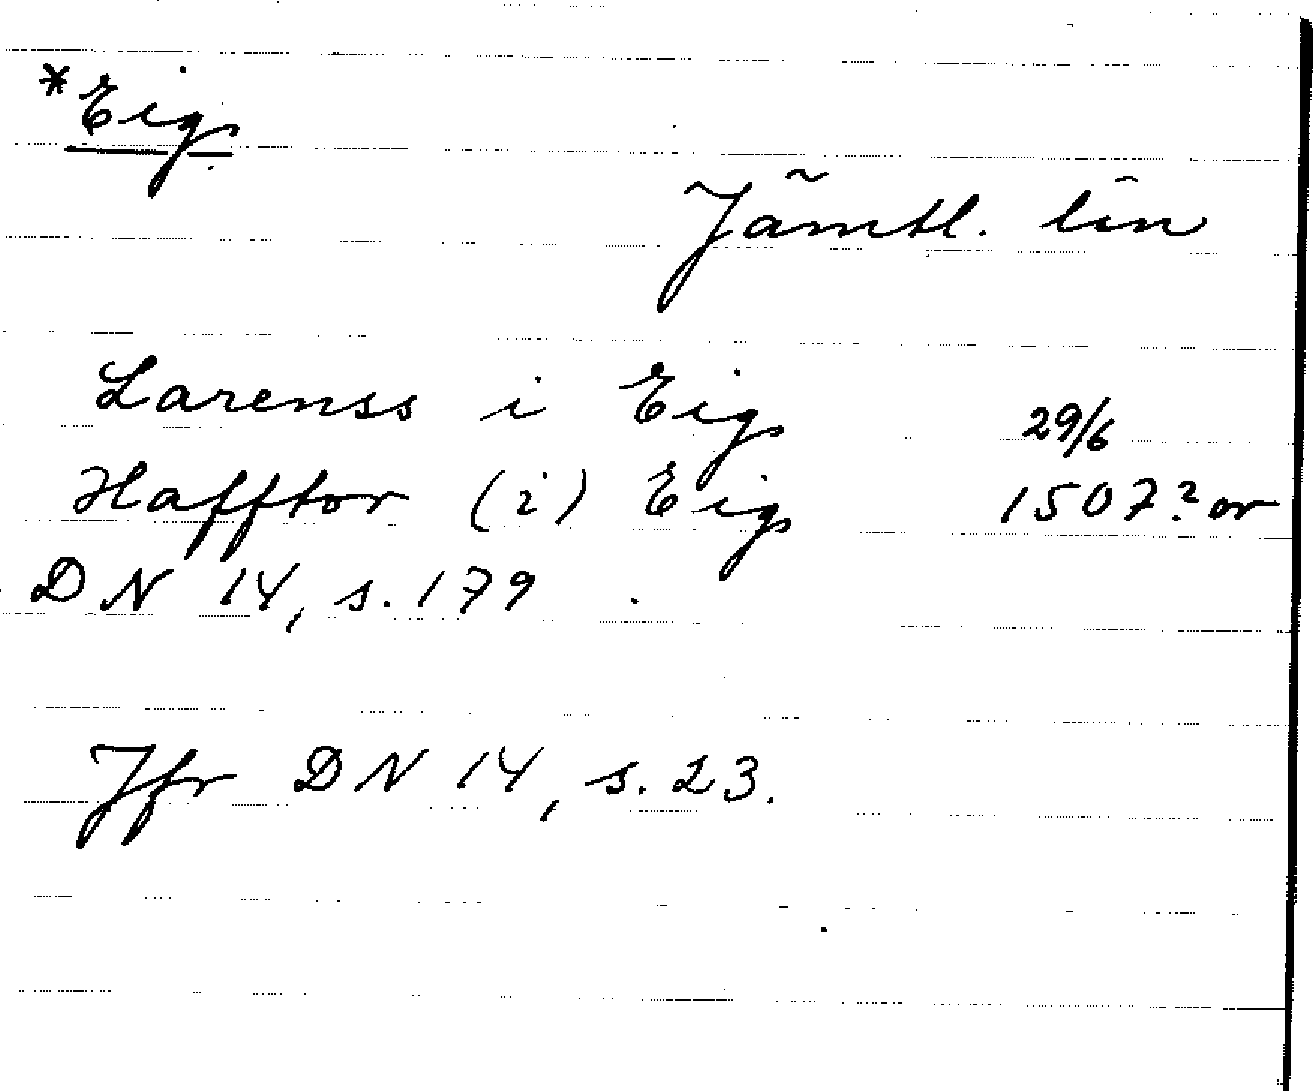 *Eig
Jämtl. län
Larenss i Eig 29/6
Hafftor (i) Eig 1507? or
DN 14, s. 179
Jfr DN 14, s. 23.